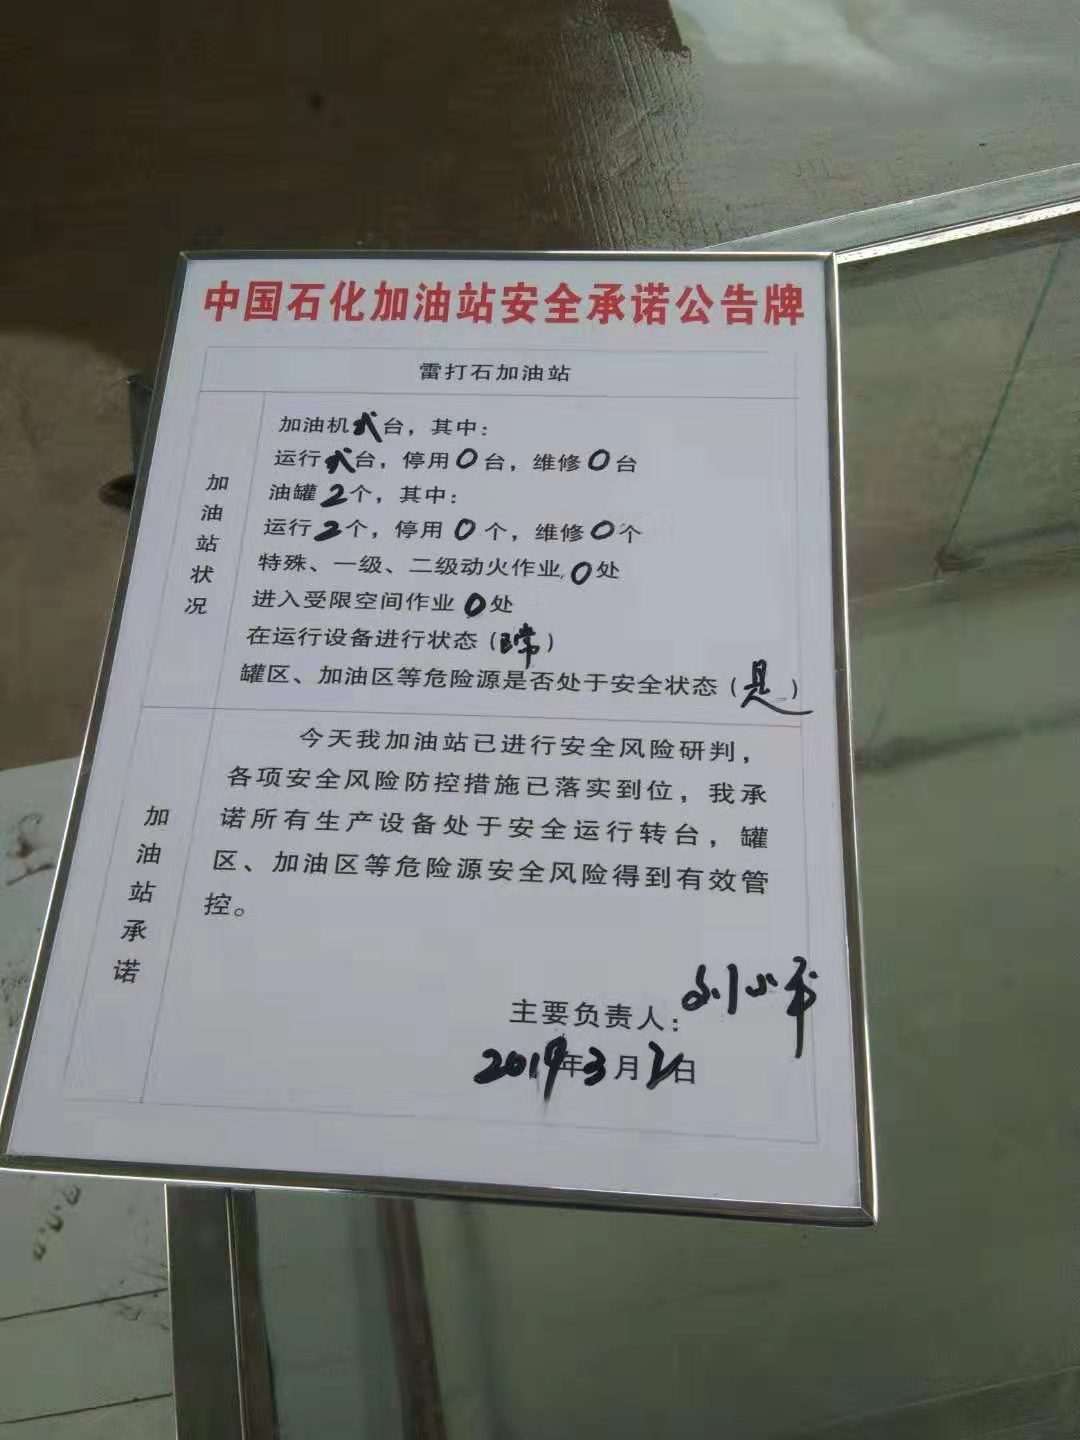 中国石化加油站安全承诺公告牌
雷打石加油站
加油站状况
加油机 台，其中：
运行 台，停用0台，维修0台
油罐2个，其中：
运行2个，停用0个，维修0个
特殊、一级、二级动火作业，0处
进入受限空间作业0处
在运行设备进行状态（正常）
罐区、加油区等危险源是否处于安全状态（是）
加油站承诺
今天我加油站已进行安全风险研判，
各项安全风险防控措施已落实到位，我承
诺所有生产设备处于安全运行转台，罐
区、加油区等危险源安全风险得到有效管
控。
主要负责人：刘小平
2019年3月2日